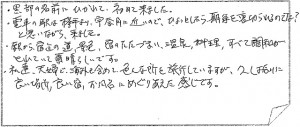 ・黒部の名前に ひかれて、初めて来ました。
・電車の駅は様子より、宇奈月に近いので、ひょっとしたら 騒音を裏切られるのでは？
と思いながら、来ました。
・駅から宿迄の道、景色、宿のたたずまい、温泉、料理、すべて調和が
とれていて素晴らしいです。
・私達、夫婦で海外も含めて、色んな所を旅行していますが、久しぶりに
良い場所、良い宿、お風呂にめぐりあえた感じです。